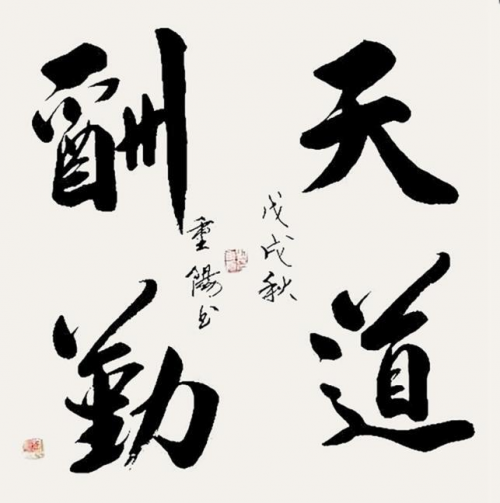 天道
酬勤
戊戌秋
重陽书